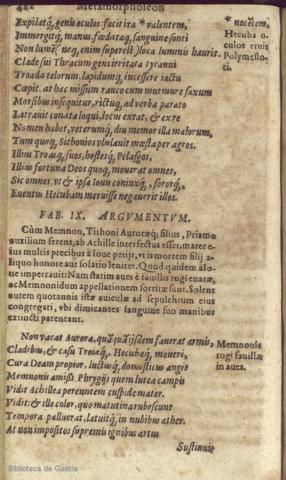 422 Metamorphoseon
Expilatq́, genis oculos: facit ira * valentem,
Immergitq́, manus, fœdataq́, sanguine sonti
Non lumẽ neq, enim superest) loca luminis haurit.
Clade sui Thracum gens irritata tyranni
Troada telorum, lapidumq́, incessere iactu
Cœpit. at hæc missum rauco cum murmure saxum
Morsibus insequitur, rictuq́, ad verba parato
Latrauit conata loqui, locus extat, & ex re
Nomen habet, veterumq́, diu memor illa malorum,
Tum quoq, Sithonios vlulauit mœsta per agros.
Illius Troasq́, suos, hosteśq́, Pelasgos,
Illius fortuna Deos quoq, mouerat omnes,
Sic omnes, vt & ipsa Iouis coniuxq́, sororq́,
Euentus Hecubam meruisse negauerit illos.
* nocẽtem,
Hecuba o-
culos eruit
Polymesto-
ti.
FAB. IX. ARGVMENTVM.
Cùm Memnon, Tithoni Auroræq́; filius, Priamo
auxilium ferens, ab Achille interfectus esset, mater e-
ius multis precibus à Ioue petijt, vt is mortem filij a-
liquo honore aut solatio leniret. Quod quidem à Io-
ue impetrauit: Nam statim aues è fauillis rogi enatæ,
ac Memnonidum appellationem sortitæ sunt. Solent
autem quotannis istæ auiculæ ad sepulchrum eius
congregari, vbi dimicantes sanguine suo manibus
extincti parentant.
Non vacat Auroræ, quã quã ijsdem fauerat armis,
Cladibus, & casu Troiaq́, Hecubaq́, moueri,
Cura Deam propior, luctusq́, domesticus angit
Memnonis amissi. Phrygijs quem lutea campis
Vidit Achillea pereuntem cuspide mater.
Vidit: & ille color, quo matutina rubescunt
Tempora, palluerat, latuitq́, in nubibus æther.
At non impositos supremis ignibus artus
Memnonis
rogi fauillæ
in aues.
Sustinuit
Biblioteca de Galicia